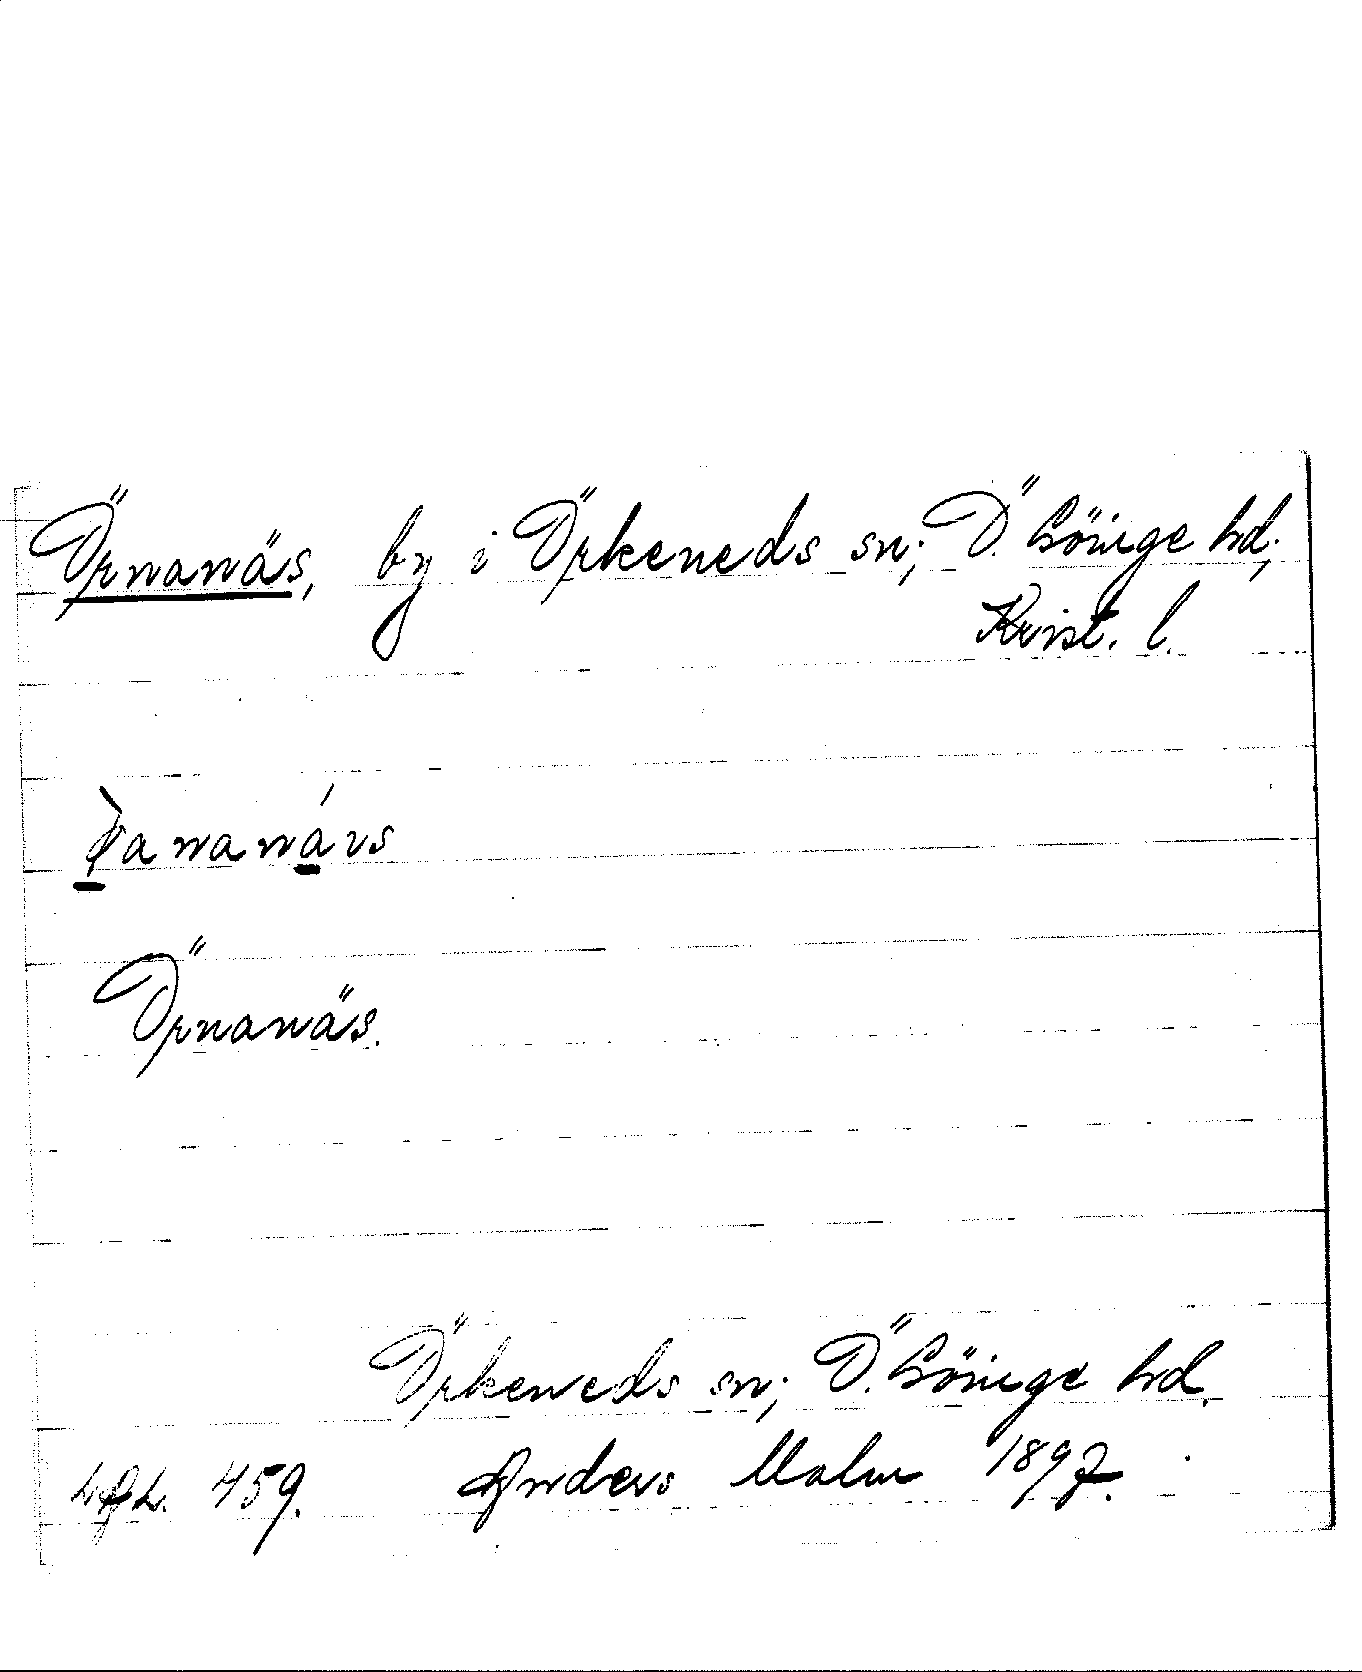 Örnanäs, by i Örkeneds sn; Ö. Göinge hd;
Krist. l.
Örnanäs.
Örkeneds sn; Ö. Göinge hd.
459. Anders Malm 1897.